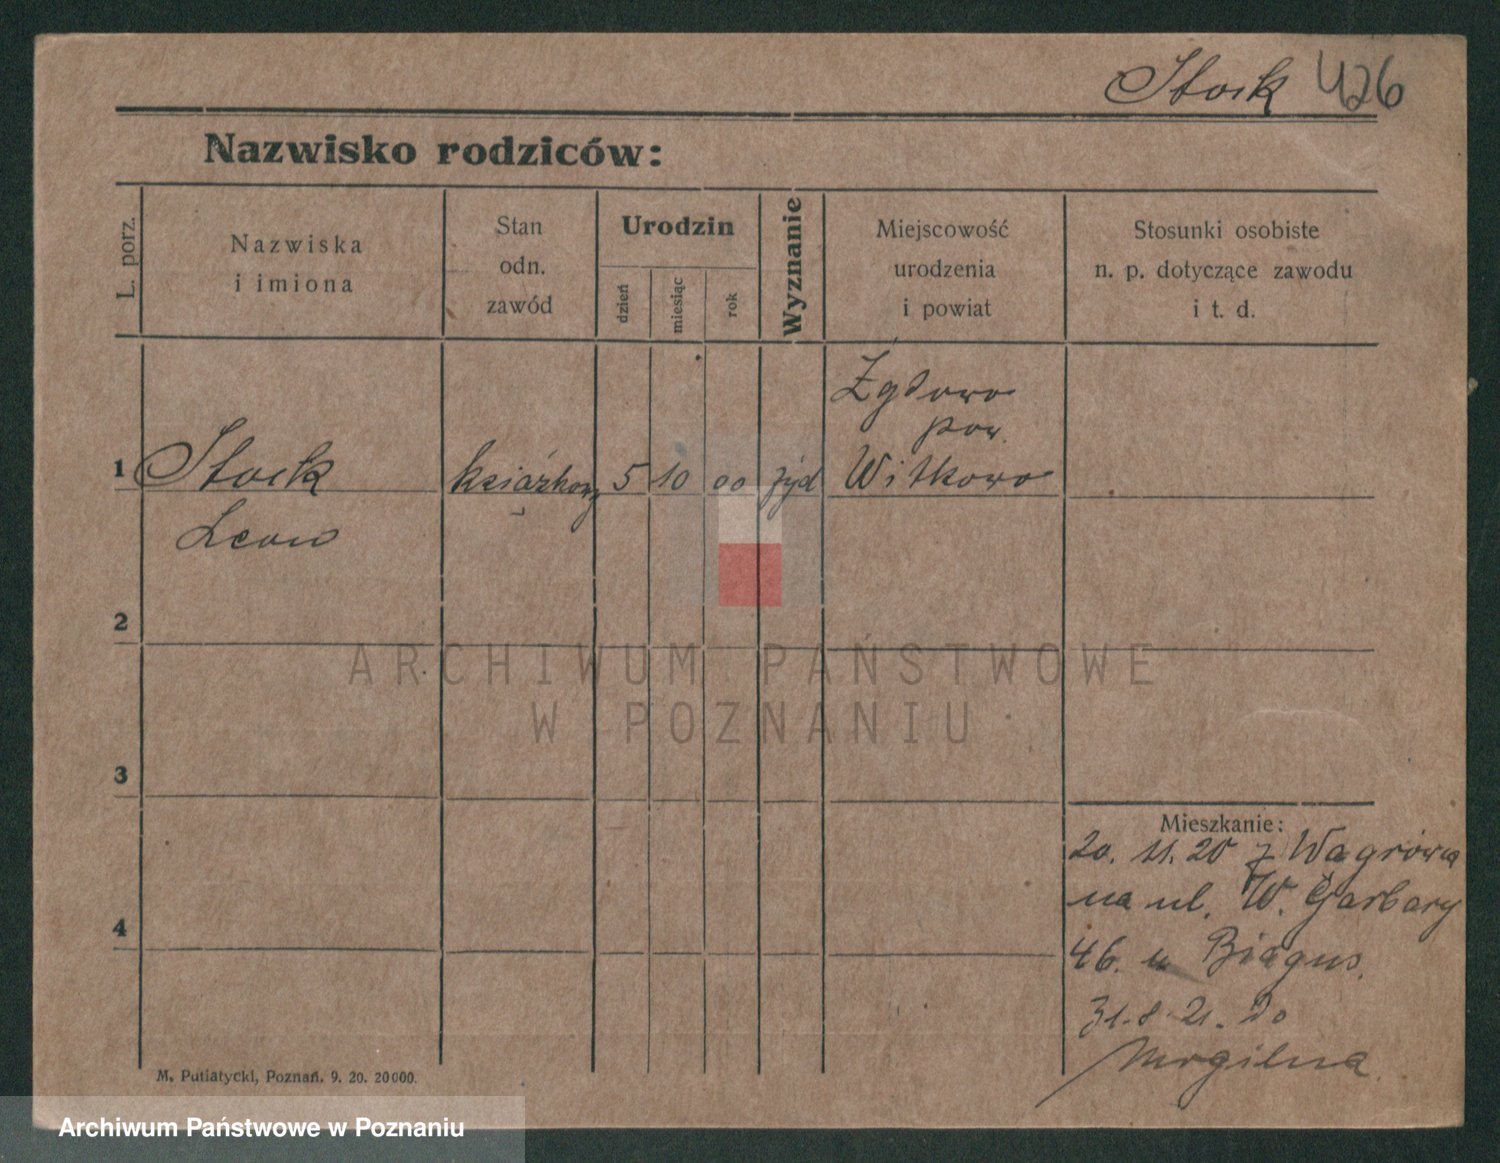 Stock 426
Nazwisko rodziców:
L. porz.
Nazwiska
i imiona
Stan
odn.
zawód
Urodzin
dzień
miesiąc
rok
Wyznanie
Miejscowość
urodzenia
i powiat
Stosunki osobiste
n. p. dotyczące zawodu
i t. d.
Zgdowo
pow.
1 Stock książkowy 5 10 00 żyd Witkowo
Leon
2
ARCHIWUM PAŃSTWOWE
W POZNANIU
3
Mieszkanie:
20. 11. 20 z Wągrówca
na ul. W. Garbary
46. u
4
31. 8. 21. do
Mogilna.
M. Putiatycki, Poznań. 9. 20. 20000.
Archiwum Państwowe w Poznaniu